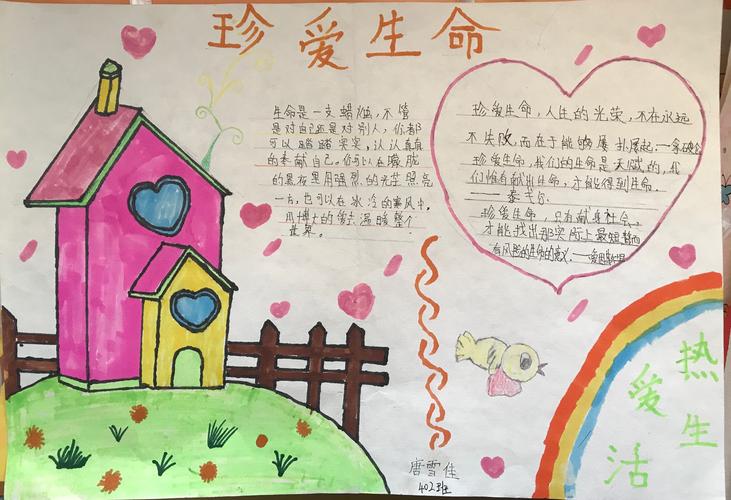 珍爱生命
生命是一支蜡烛,不管
是对自己还是对别人,你都
可以踏踏实实,认认真真
的奉献自己。你可以在朦胧
的黑夜里用强烈的光芒照亮
一方,也可以在冰冷的寒风中,
用博大的爱去温暖整个
世界。
珍爱生命,人生的光荣,不在永远
不失败,而在于能够屡扑屡起——拿破仑
珍爱生命,我们的生命是天赋的,我
们惟有献出生命,才能得到生命。
泰戈尔
珍爱生命,只有献身社会,
才能找出那实际上是短暂而
有风险的生命的意义——爱因斯坦
热爱生活
唐雪佳
402班